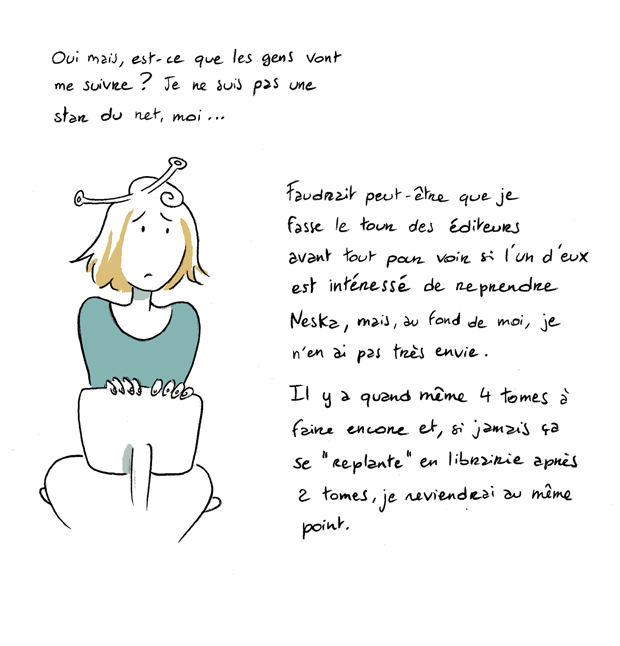 Oui mais, est-ce que les gens vont
me suivre ? Je ne suis pas une
star du net, moi...
Faudrait peut-être que je
fasse le tour des éditeurs
avant tout pour voir si l'un d'eux
est intéressé de reprendre
Neska, mais, au fond de moi, je
n'en ai pas très envie.
Il y a quand même 4 tomes à
faire encore et, si jamais ça
se "replante" en librairie après
2 tomes, je reviendrai au même
point.